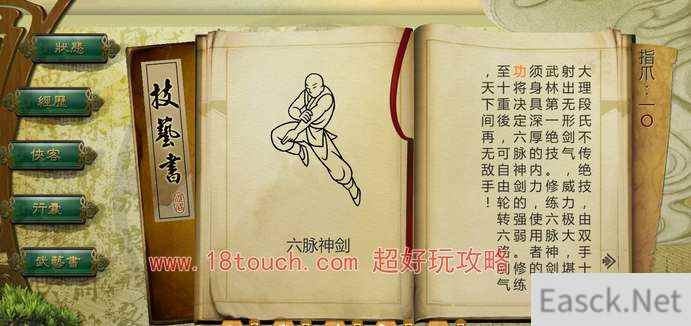 狀態
經歷
俠客
行囊
武藝書
技藝書
六脉神剑
指爪：一〇
大理段氏不传绝技，由双手十
射出无形剑气，威力极大，堪
武林第一绝技。修练六脉神剑
须身具深厚的内力，使用者的
功将决定六脉神剑的强弱。修练
至十重後，可自由轮转六 剑气
，天下间再无敌手！
www.18touch.com 超好玩攻略
Easck.Net